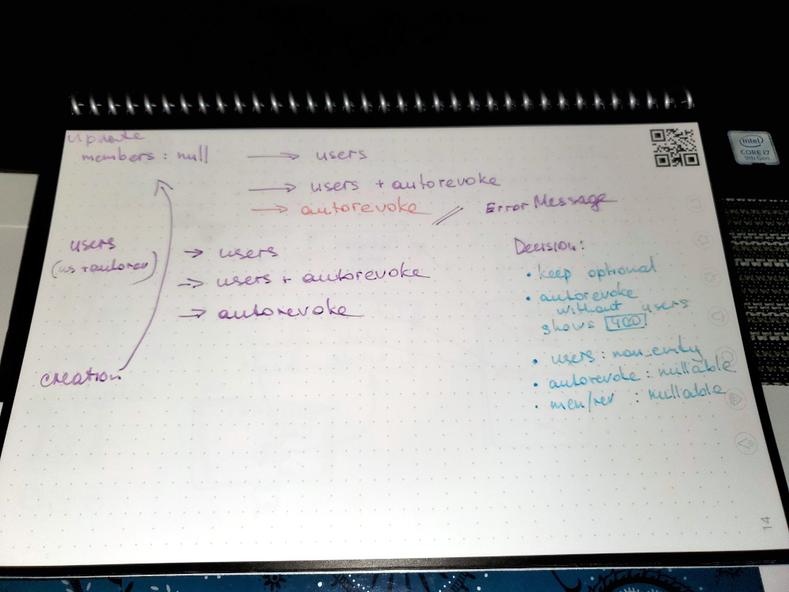 Update
members : null → users
→ users + autorevoke
→ autorevoke // Error Message
users
(us + autorev)
→ users
→ users + autorevoke
→ autorevoke
creation
Decision:
• keep optional
• autorevoke
without users
shows 400
• users : non_emty
• autorevoke : nullable
• mem/rev : nullable
14
intel
CORE i7
9th Gen